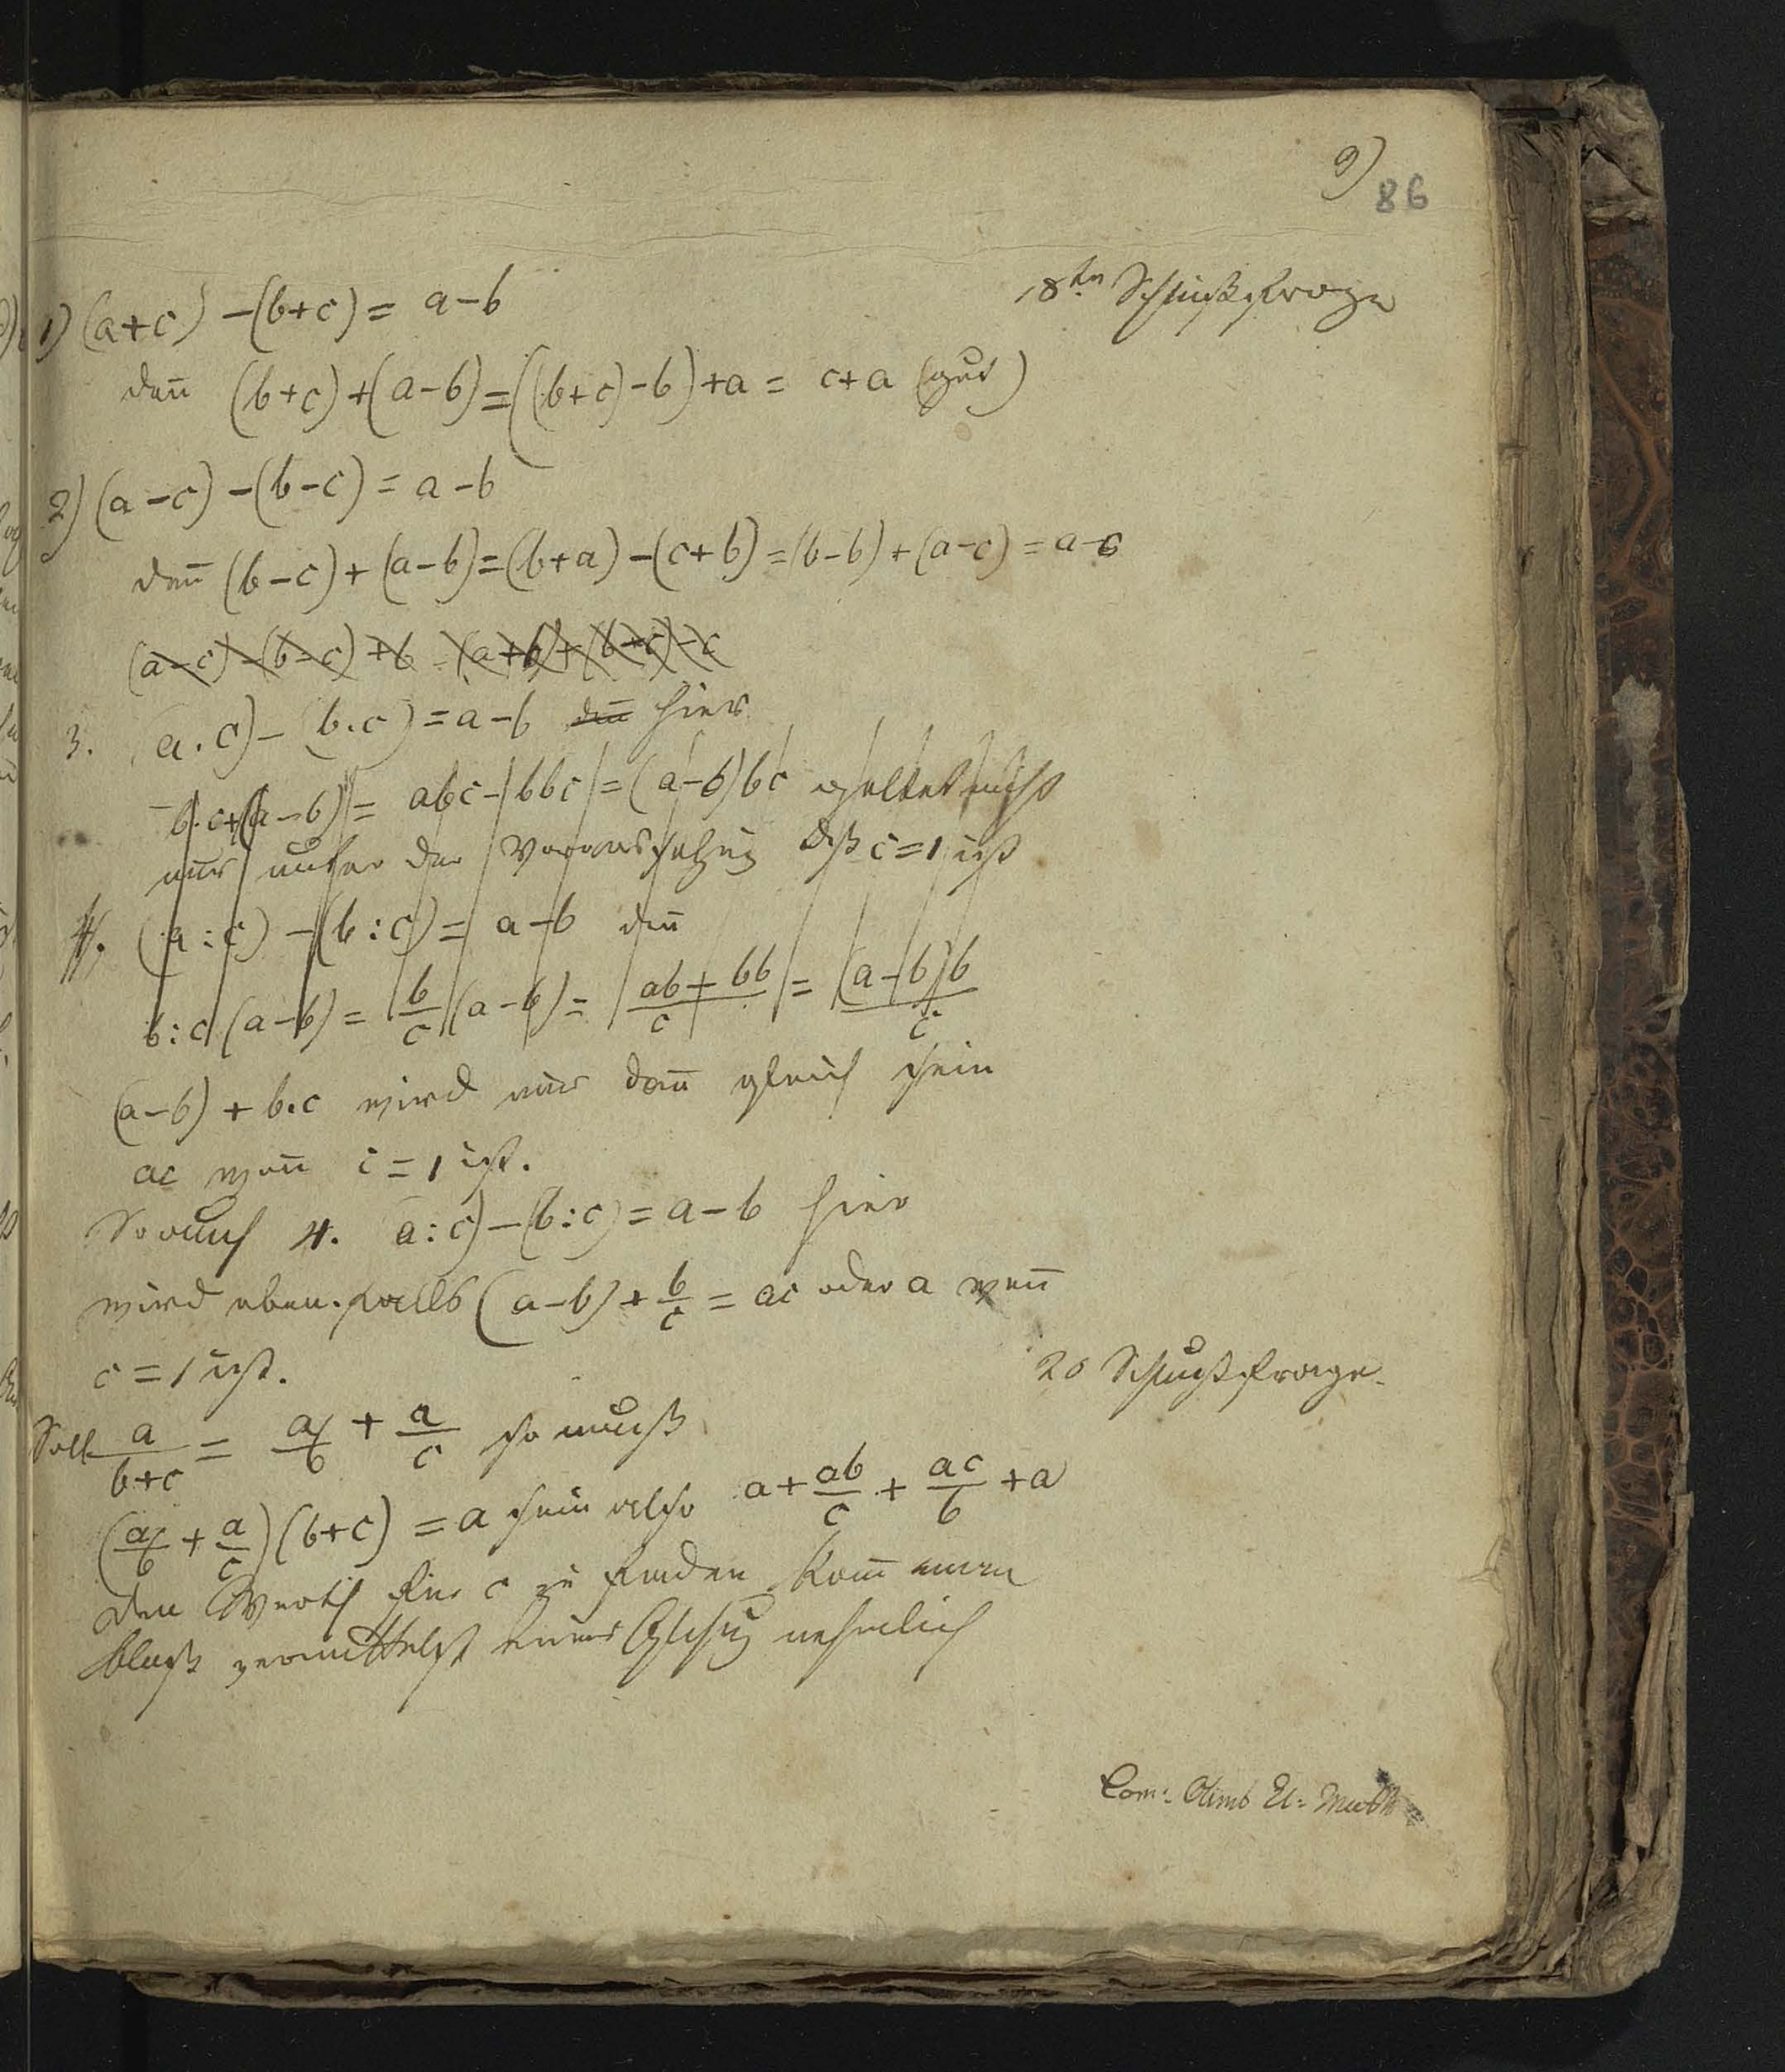 9)
86
18tn Schlußfrage
1) (a+c) -(b+c) = a-b
deñ (b+c)+(a-b)=((b+c)-b)+a = c+a (gut)
2) (a-c) -(b-c) = a-b
deñ (b-c)+(a-b)=(b+a)-(c+b)=(b-b)+(a-c) = a-c
(a-c)-(b-c)+b = (a+b)+(b-c)-c
3. (a.c)-(b.c)=a-b deñ hier
b.c+(a-b)= abc-bbc=(a-b)bc geltet nicht
nur unter der Voraussetzung dß c=1 ist
4. (a:c) -(b:c)= a-b deñ
b:c (a-b) = b/c (a-b) = ab+bb/c = (a-b)b/c
(a-b) + b.c wird nur dañ gleich sein
ac weñ c=1 ist.
So auch 4. (a:c)-(b:c)=a-b hier
wird ebenfalls (a-b)+b/c = ac oder a weñ
c=1 ist.
20 Schlußfrage
Soll a/b+c = a/b + a/c so muß
(a/b + a/c)(b+c) = a sein also a+ab/c + ac/b +a
den Werth für c zu finden kañ man
bloß vermittelst einer Glchug nehmlich
Com: Olimb El: Math